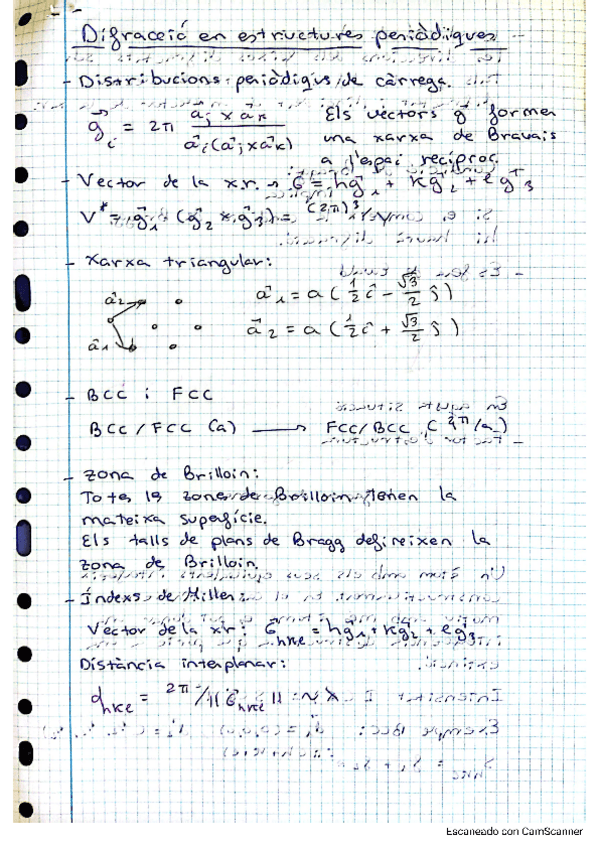 Difracció en estructures periòdiques
- Distribucions periòdiqus de càrrega.
g⃗ᵢ = 2π (a⃗ⱼ × a⃗ₖ) / (a⃗ᵢ(a⃗ⱼ×a⃗ₖ)) Els vectors g⃗ formen
una xarxa de Bravais
a l'espai recíproc.
- Vector de la x.r. → G⃗ = hg⃗₁ + kg⃗₂ + lg⃗₃
V* = g⃗₁ (g⃗₂ × g⃗₃) = (2π)³/V
- Xarxa triangular:
a⃗₂ a⃗₁ = a (½ î - √3/2 ĵ)
a⃗₁ a⃗₂ = a (½ î + √3/2 ĵ)
- BCC i FCC
BCC/FCC (a) ⟶ FCC/BCC (2π/a)
- Zona de Brilloin:
Totes les zones de Brilloin tenen la
mateixa superfície.
Els talls de plans de Bragg defineixen la
zona de Brilloin.
- Índexs de Miller:
Vector de la xr: G⃗hkl = hg⃗₁ + kg⃗₂ + lg⃗₃
Distància interplanar:
dhkl = 2π/||G⃗hkl||
Escaneado con CamScanner